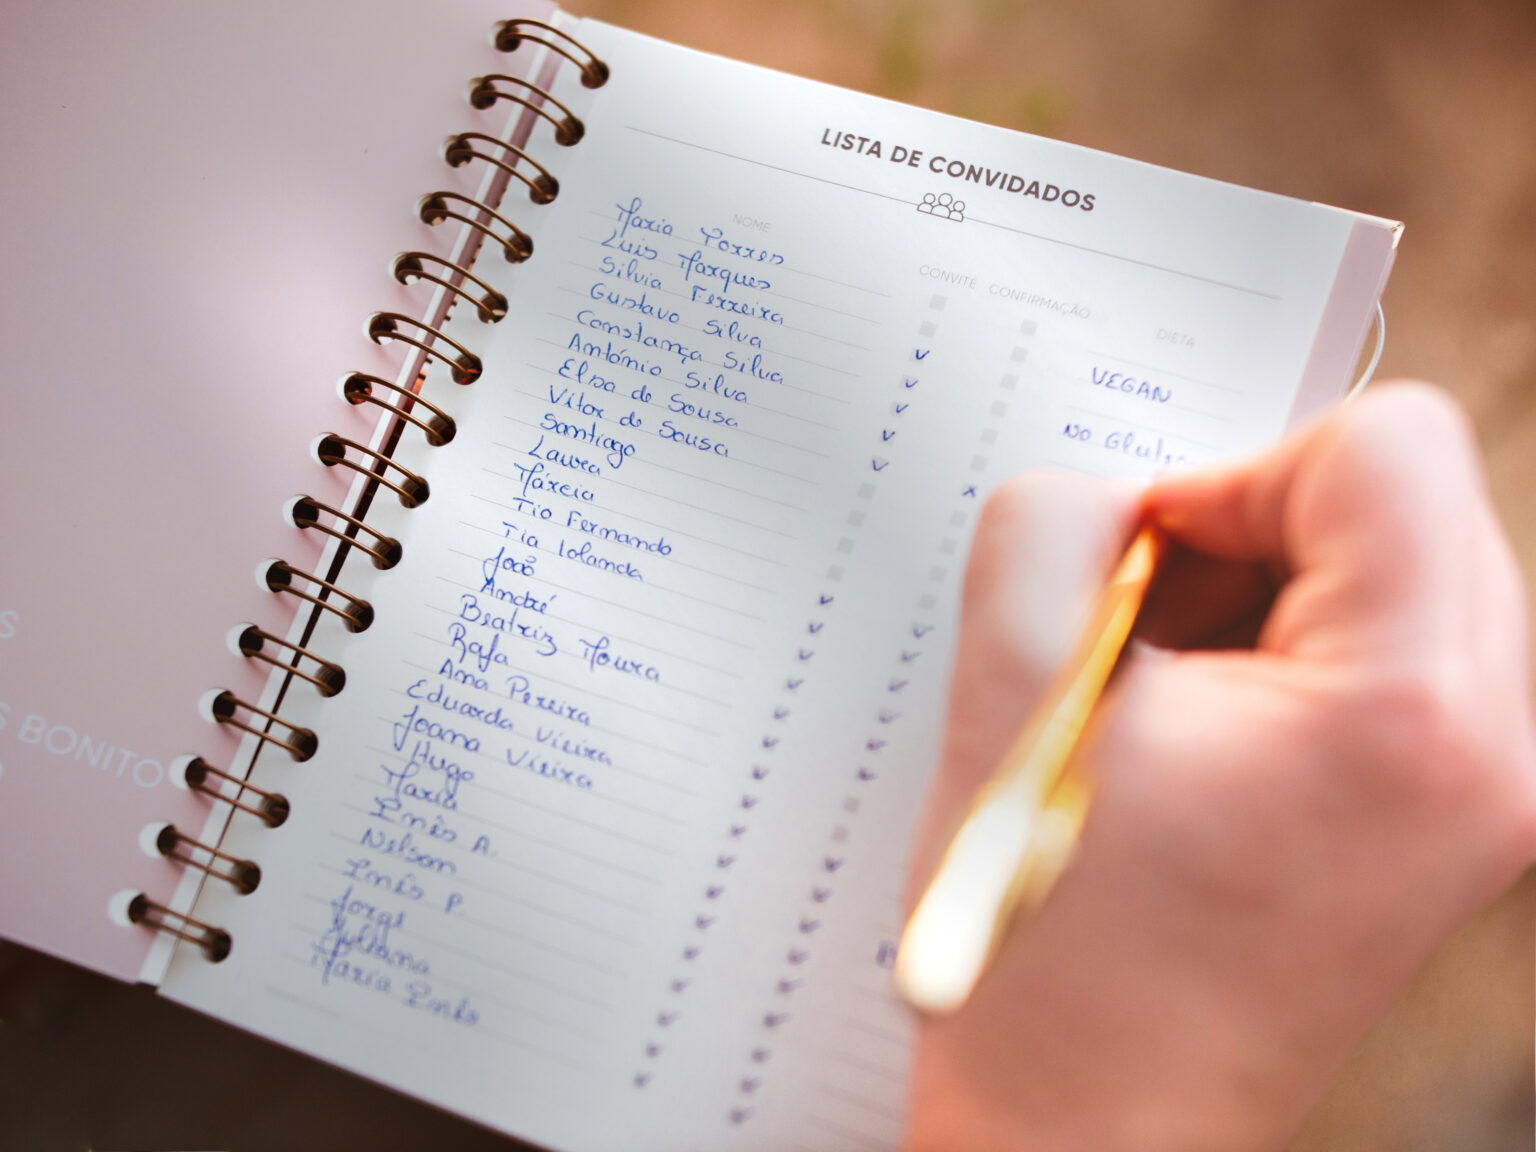 S
S BONITO
LISTA DE CONVIDADOS
NOME CONVITE CONFIRMAÇÃO DIETA
Maria Torres
Luis Marques
Silvia Ferreira
Gustavo Silva
Constança Silva VEGAN
António Silva
Elsa de Sousa NO Gluten
Vitor de Sousa
Santiago
Laura
Márcia
Tio Fernando
Tia Iolanda
João
André
Beatriz Moura
Rafa
Ana Pereira
Eduarda Vieira
Joana Vieira
Hugo
Maria
Inês A.
Nelson
Inês P.
Jorge
Juliana
Maria Inês